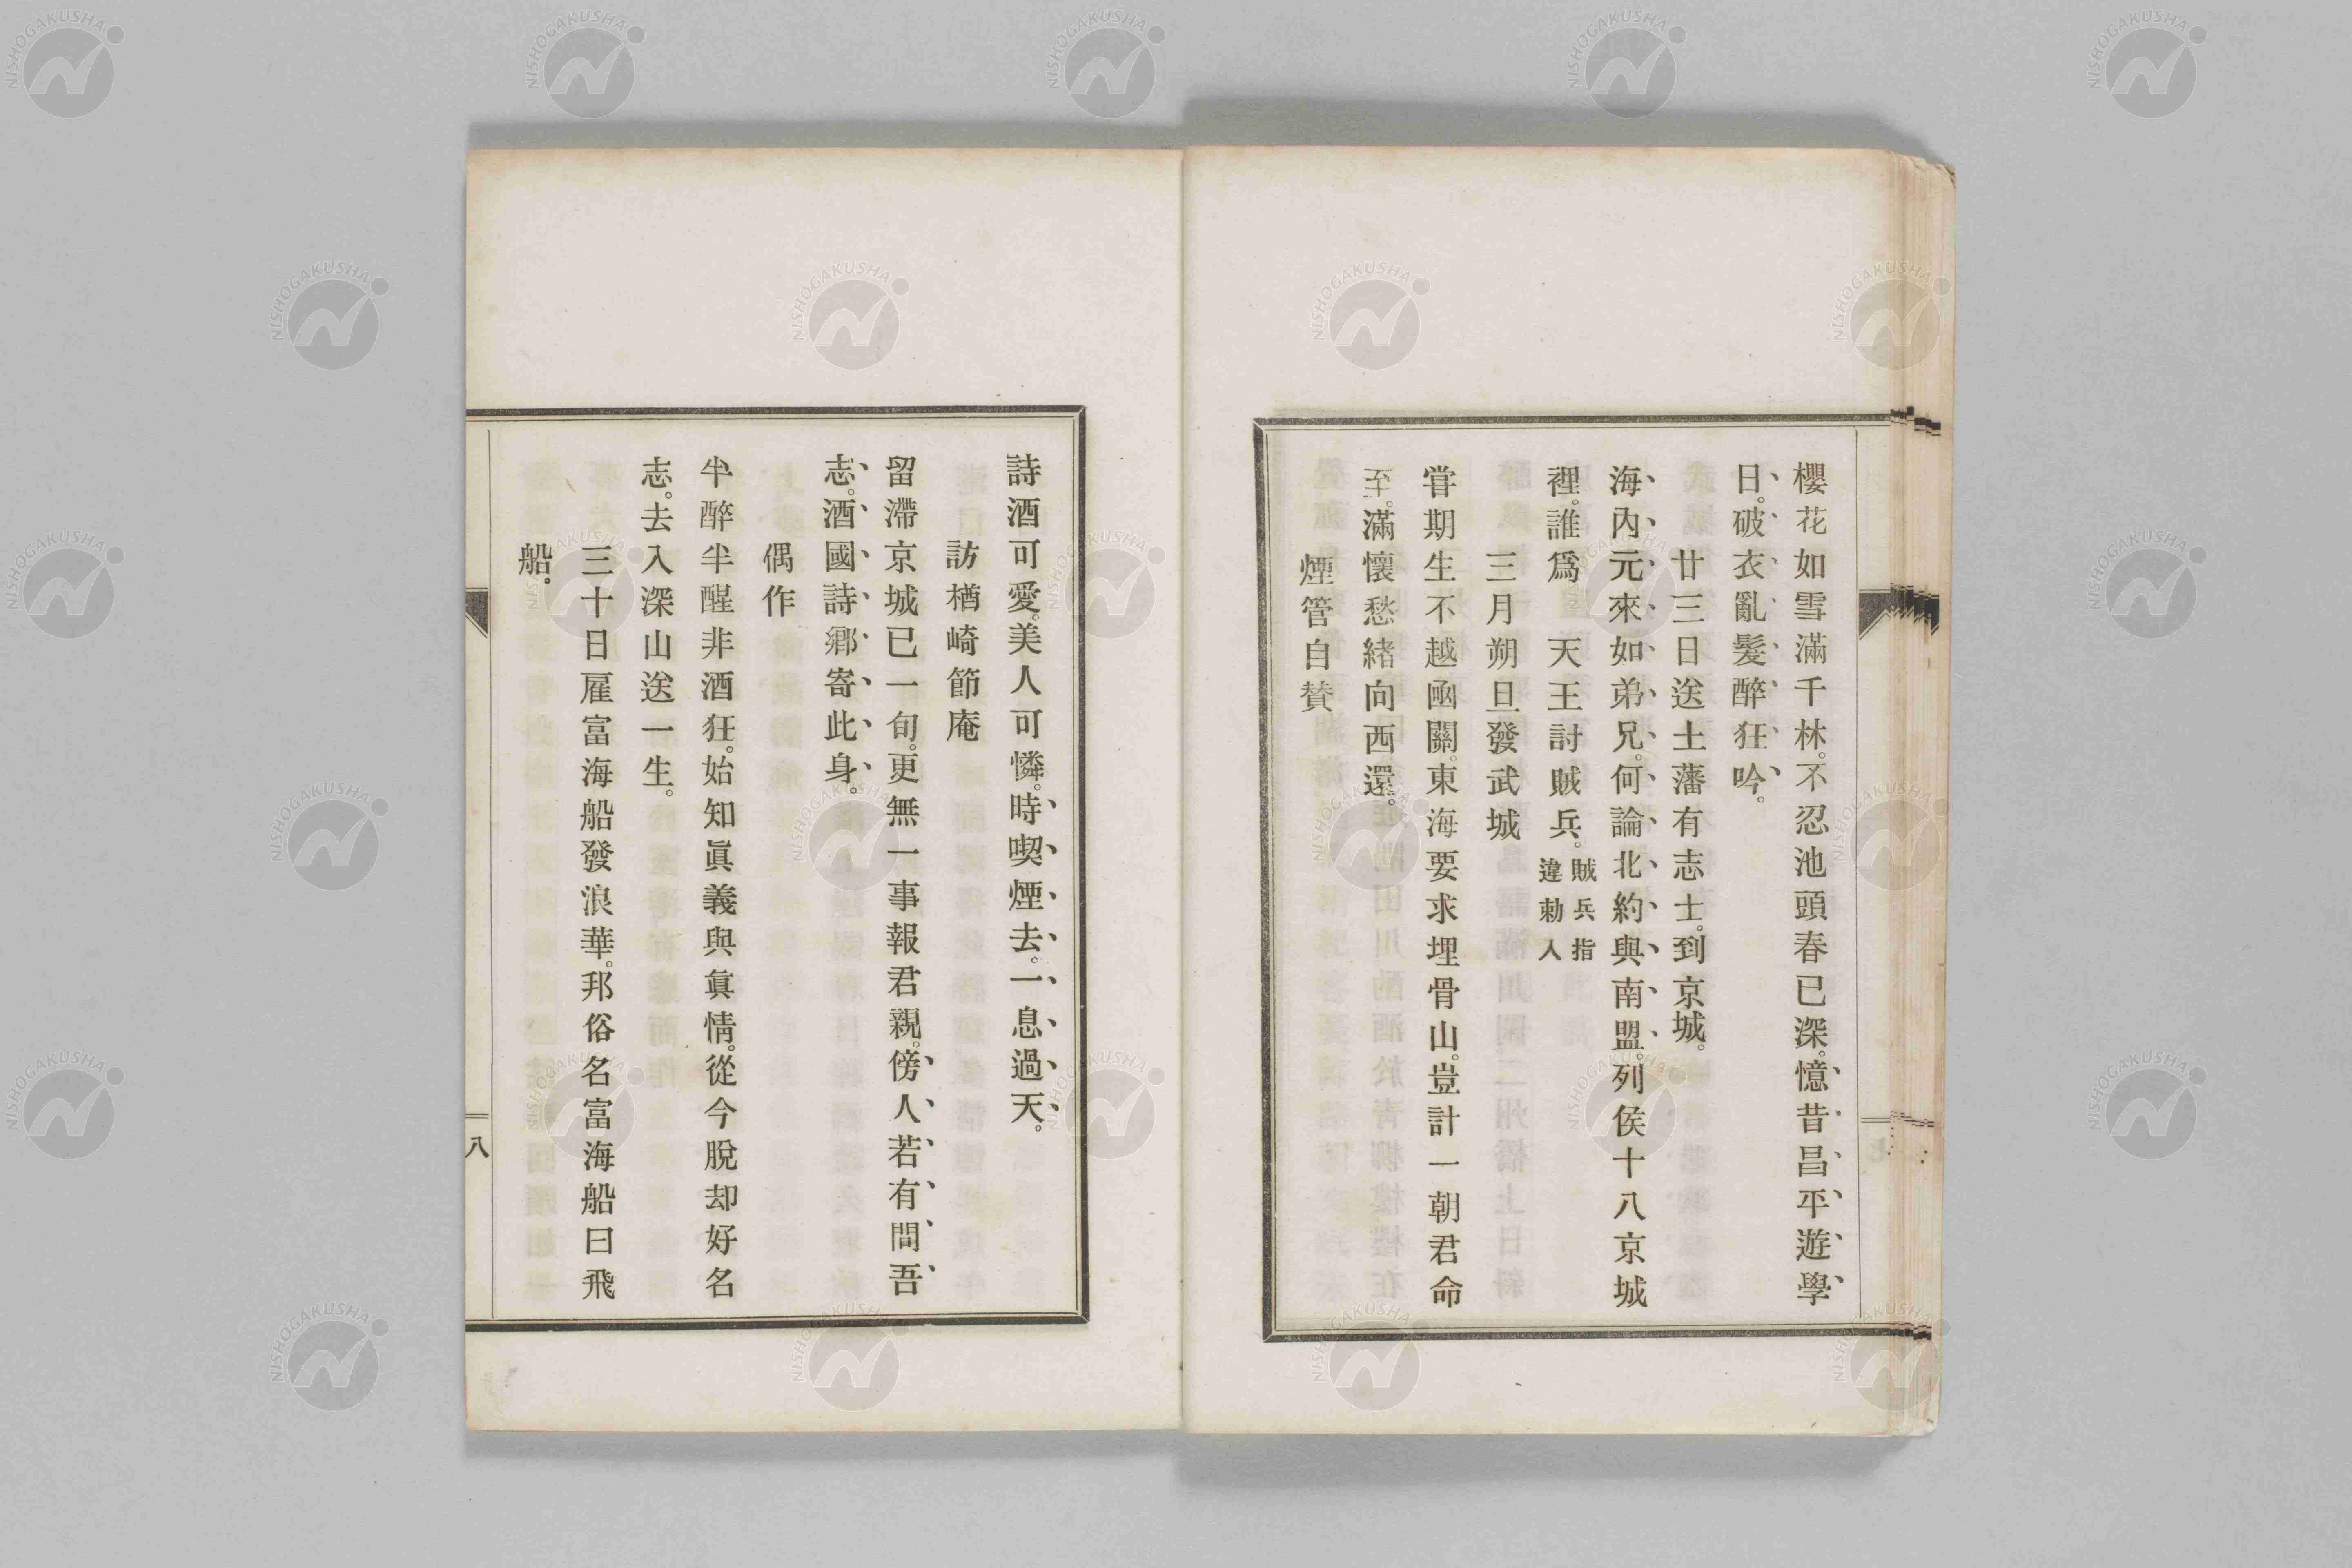 櫻花如雪滿千林。不忍池頭春已深。憶昔昌平遊學
日。破衣亂髮醉狂吟。
廿三日送土藩有志士。到京城。
海內元來如弟兄。何論北約與南盟。列侯十八京城
裡。誰爲　天王討賊兵。賊兵指
違勅人
三月朔旦發武城
嘗期生不越凾關。東海要求埋骨山。豈計一朝君命
至。滿懷愁緒向西還。
煙管自賛
詩酒可愛。美人可憐。時喫煙去。一息過天。
訪楢崎節庵
留滯京城已一旬。更無一事報君親。傍人若有問吾
志。酒國詩鄉寄此身。
偶作
半醉半醒非酒狂。始知眞義與眞情。從今脫却好名
志。去入深山送一生。
三十日雇富海船發浪華。邦俗名富海船曰飛
船。
八
七
NISHOGAKUSHA